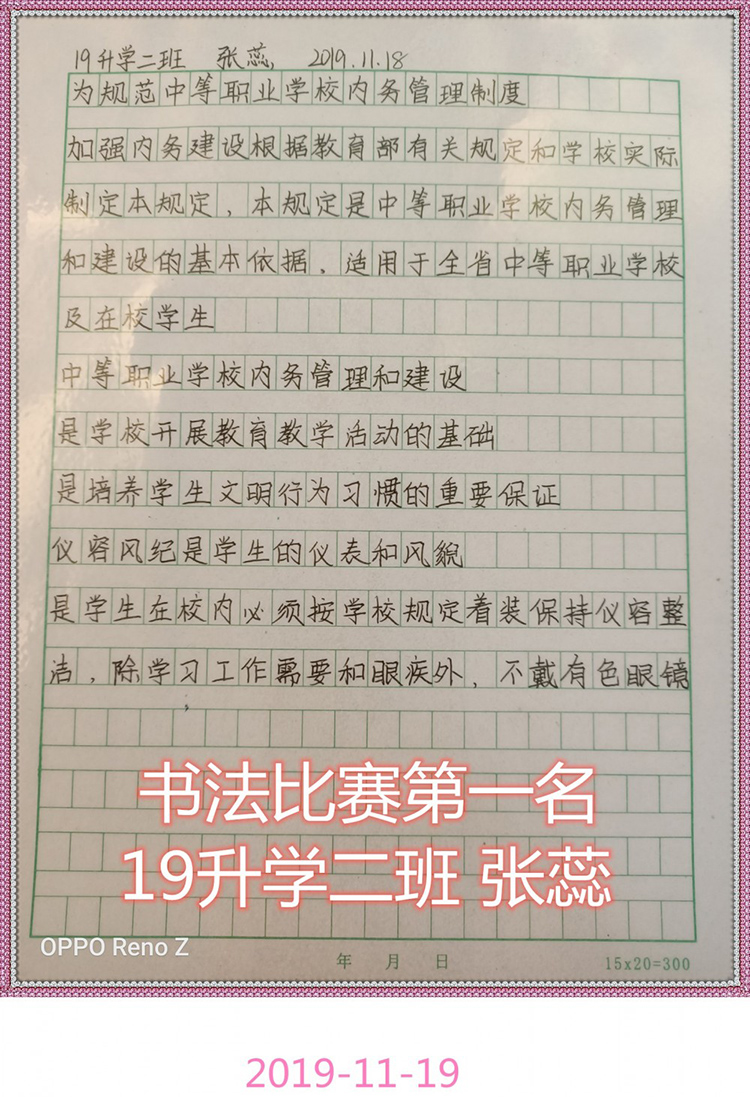 19升学二班 张蕊 2019.11.18
为规范中等职业学校内务管理制度
加强内务建设根据教育部有关规定和学校实际
制定本规定，本规定是中等职业学校内务管理
和建设的基本依据，适用于全省中等职业学校
及在校学生
中等职业学校内务管理和建设
是学校开展教育教学活动的基础
是培养学生文明行为习惯的重要保证
仪容风纪是学生的仪表和风貌
是学生在校内必须按学校规定着装保持仪容整
洁，除学习工作需要和眼疾外，不戴有色眼镜
书法比赛第一名
19升学二班 张蕊
OPPO Reno Z
年 月 日 15x20=300
2019-11-19